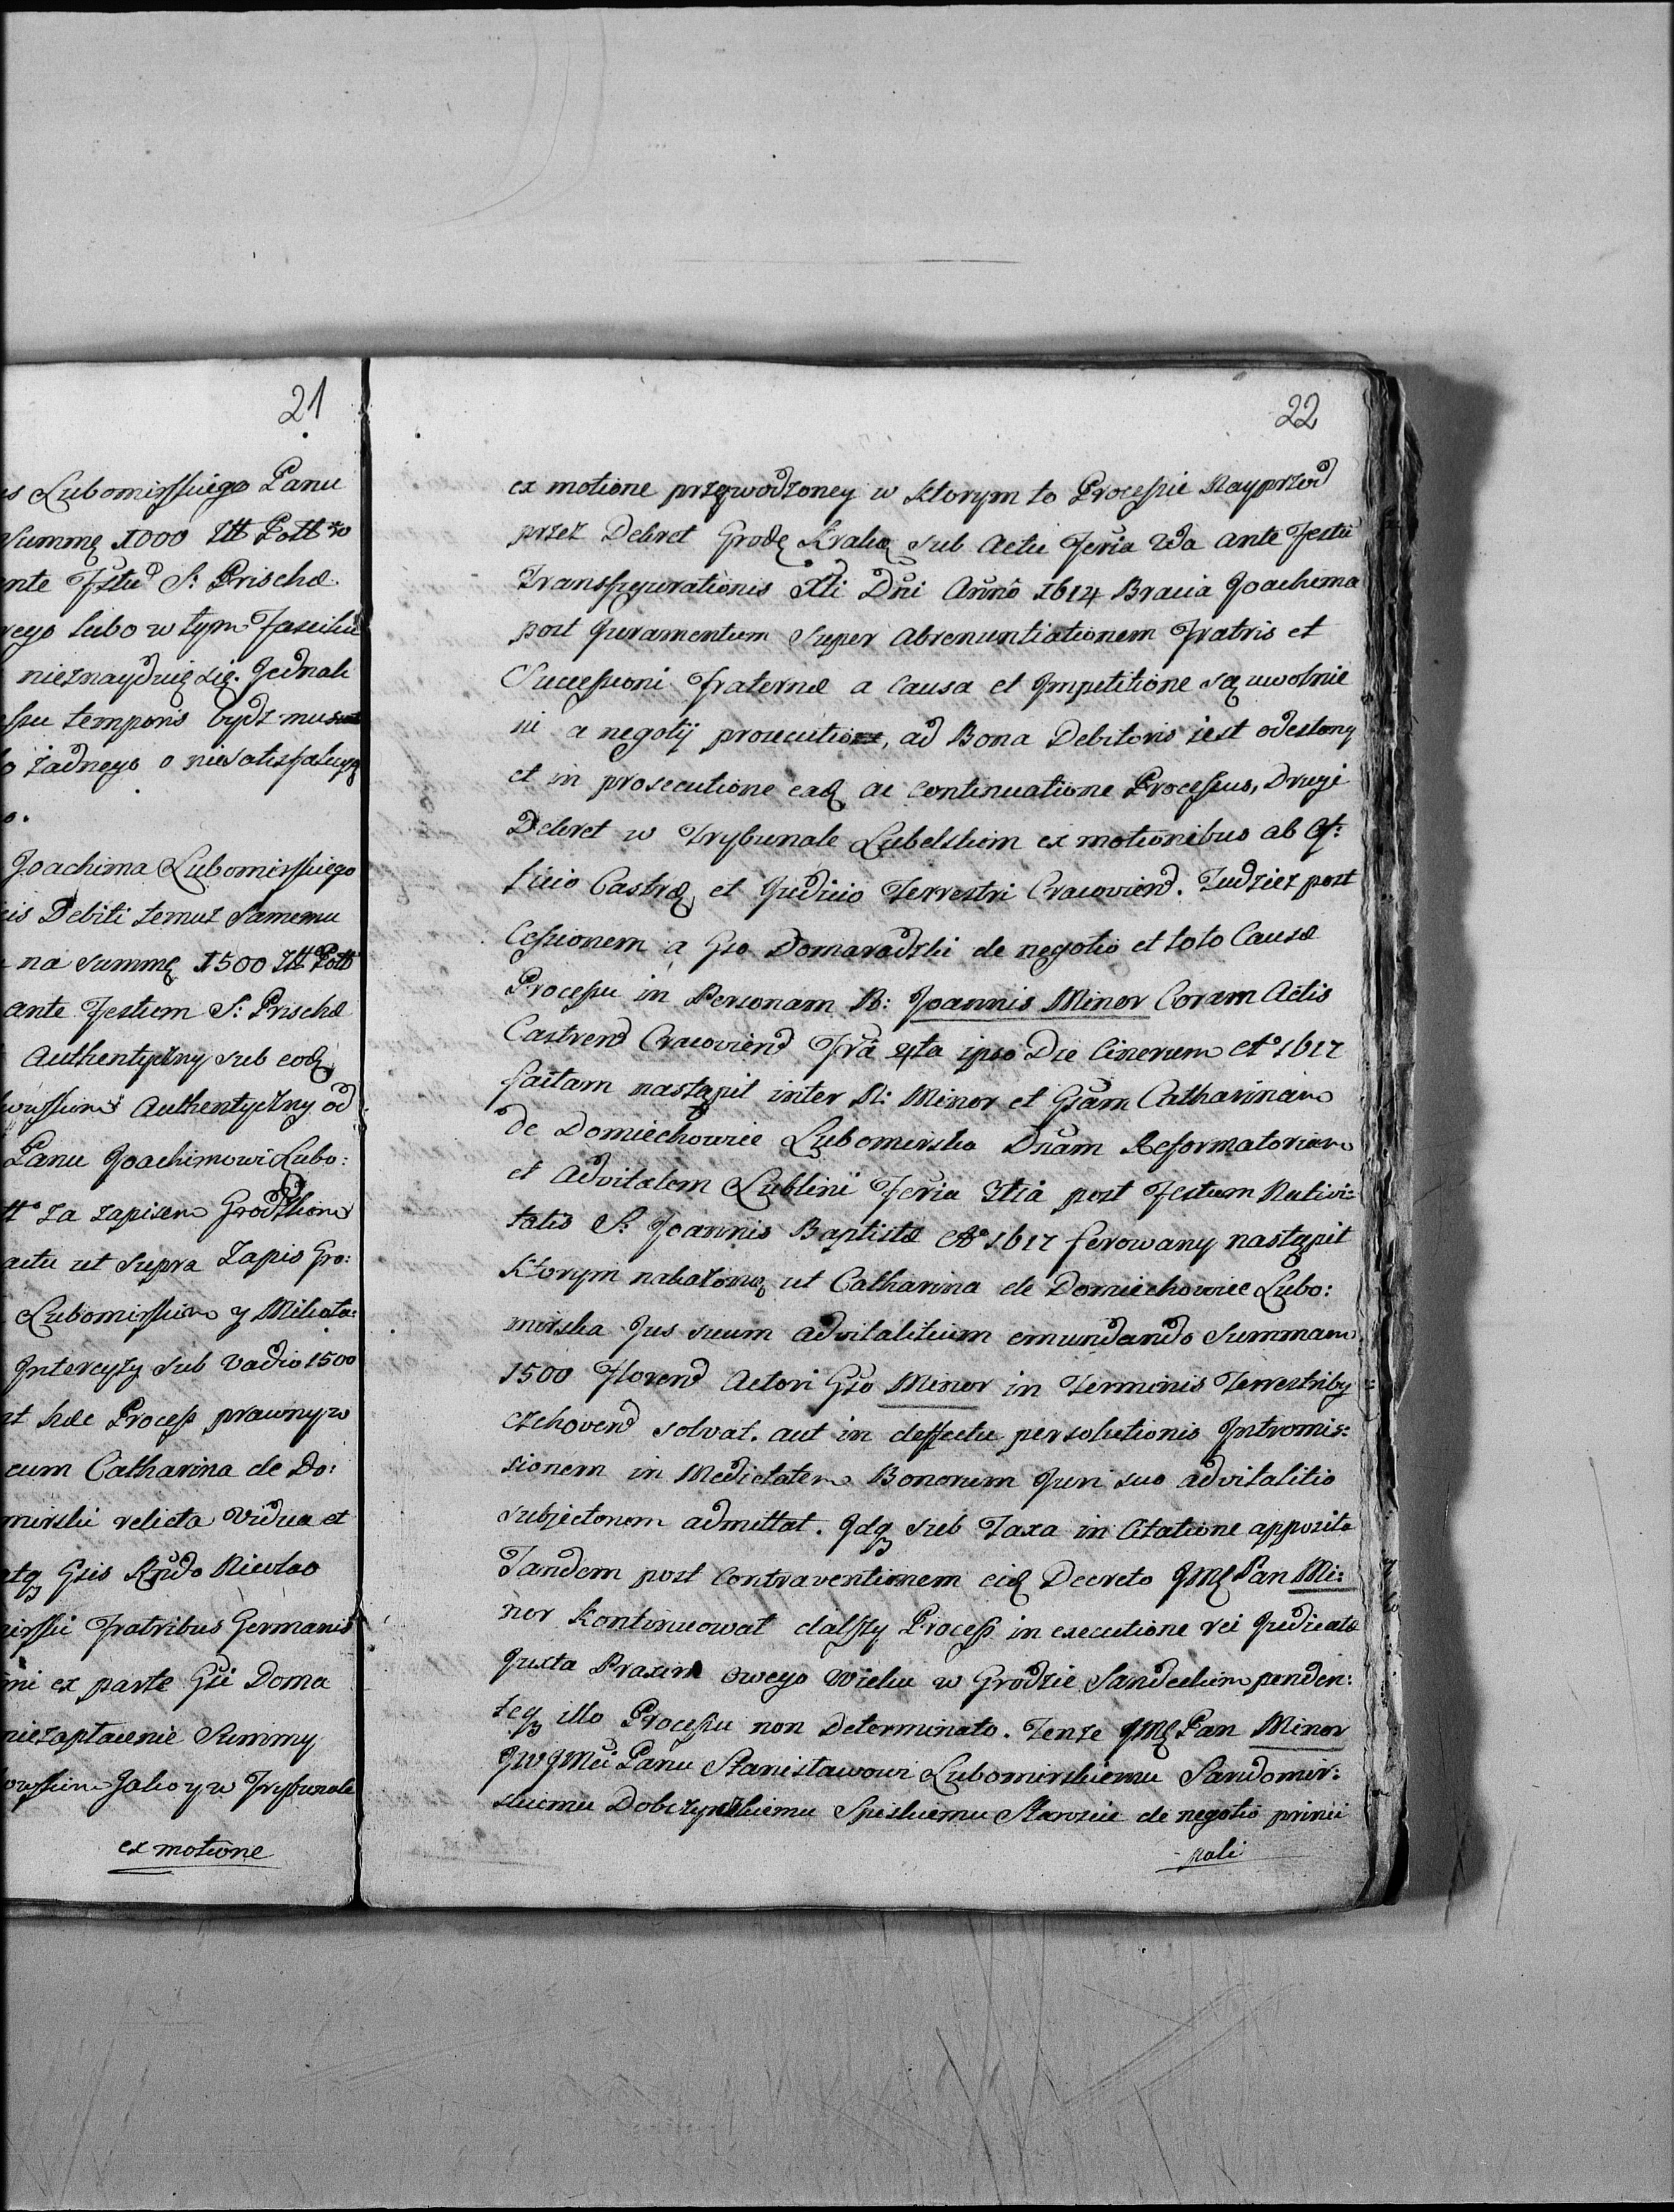 21
s Lubomirskiego Panu
Summę 1000 Ztt Pott w
nte Fstu S: Prischæ
rego lubo w tym Fascikū
nieznayduię się. Jednak
ssu temporis bydz mus
o żadnego o niesatisfakcyą
o.
Joachima Lubomirskiego
is Debiti temuz Samemu
na summę 1500 Ztt Pott
ante Festum S: Prischæ
Authentyczny sub eodę
Authentyczny od
Panu Joachimowi Lubo:
tt° za zapisem Grodzkim
actu ut supra Zapis Gro:
Lubomirskim y Mikoła:
Intercyzy sub vadio 1500
st hæc Process prawny w
cum Catharina de Do:
mirski relicta Vidua et
atq Gsis Rndo Nicolao
irski Fratribus Germanis
ni ex parte Gsi Doma
niezapłacenie Summy
owskim Jako y w Trybunale
ex motione
22
ex motione przewodzoney w ktorym to Processie Nayprzod
przez Dekret Grodę Krakę sub Actu Feria 2da ante Festū
Transfigurationis Xti Dni Anno 1614 Bracia Joachima
post Juramentum super abrenuntiationem Fratris et
Successioni Fraternæ a causa et Impetitione są uwolnie
ni a negotij prosecutione, ad Bona Debitoris iest odesłany
et in prosecutione eadę ac continuatione Processus, Drugi
Dekret w Trybunale Lubelskim ex motionibus ab Of:
ficio Castrę et Judicio Terrestri Cracoviend. Tudziez post
Cessionem a Gso Domaradzki de negotio et toto Causæ
Processu in Personam N: Joannis Minor Coram Actis
Castrend Cracoviend Fra 4ta ipso Die Cinerum A° 1617
factam nastąpił inter N: Minor et Gsam Catharinam
de Domiechowiec Lubomirska Dnam Reformatoriam
et Advitalem Lublini Feria 3tia post Festum Nativi:
tatis S. Joannis Baptistæ A° 1617 ferowany nastąpił
Ktorym nakazono, ut Catharina de Domiechowiec Lubo:
mirska Jus suum advitalitium emundando Summam
1500 Florend Actori Gso Minor in Terminis Terrestriby
czchovend solvat. aut in deffectu persolutionis Intromis:
sionem in Medietatem Bonorum Juri suo advitalitio
subjectorum admittat. Idq sub Taxa in Citatione apposita
Tandem post Contraventionem eidę Decreto JMę Pan Mi:
nor kontinuował dalszy Process in executione rei Judicatæ
Juxta Praxim owego wieku w Grodzie Sandeckim penden:
teq illo Processu non Determinato. Tenze JMę Pan Minor
JWJMci Panu Stanisławowi Lubomirskiemu Sandomir:
skiemu Dobczynskiemu Spiskiemu Staroscie de negotio princi
pali